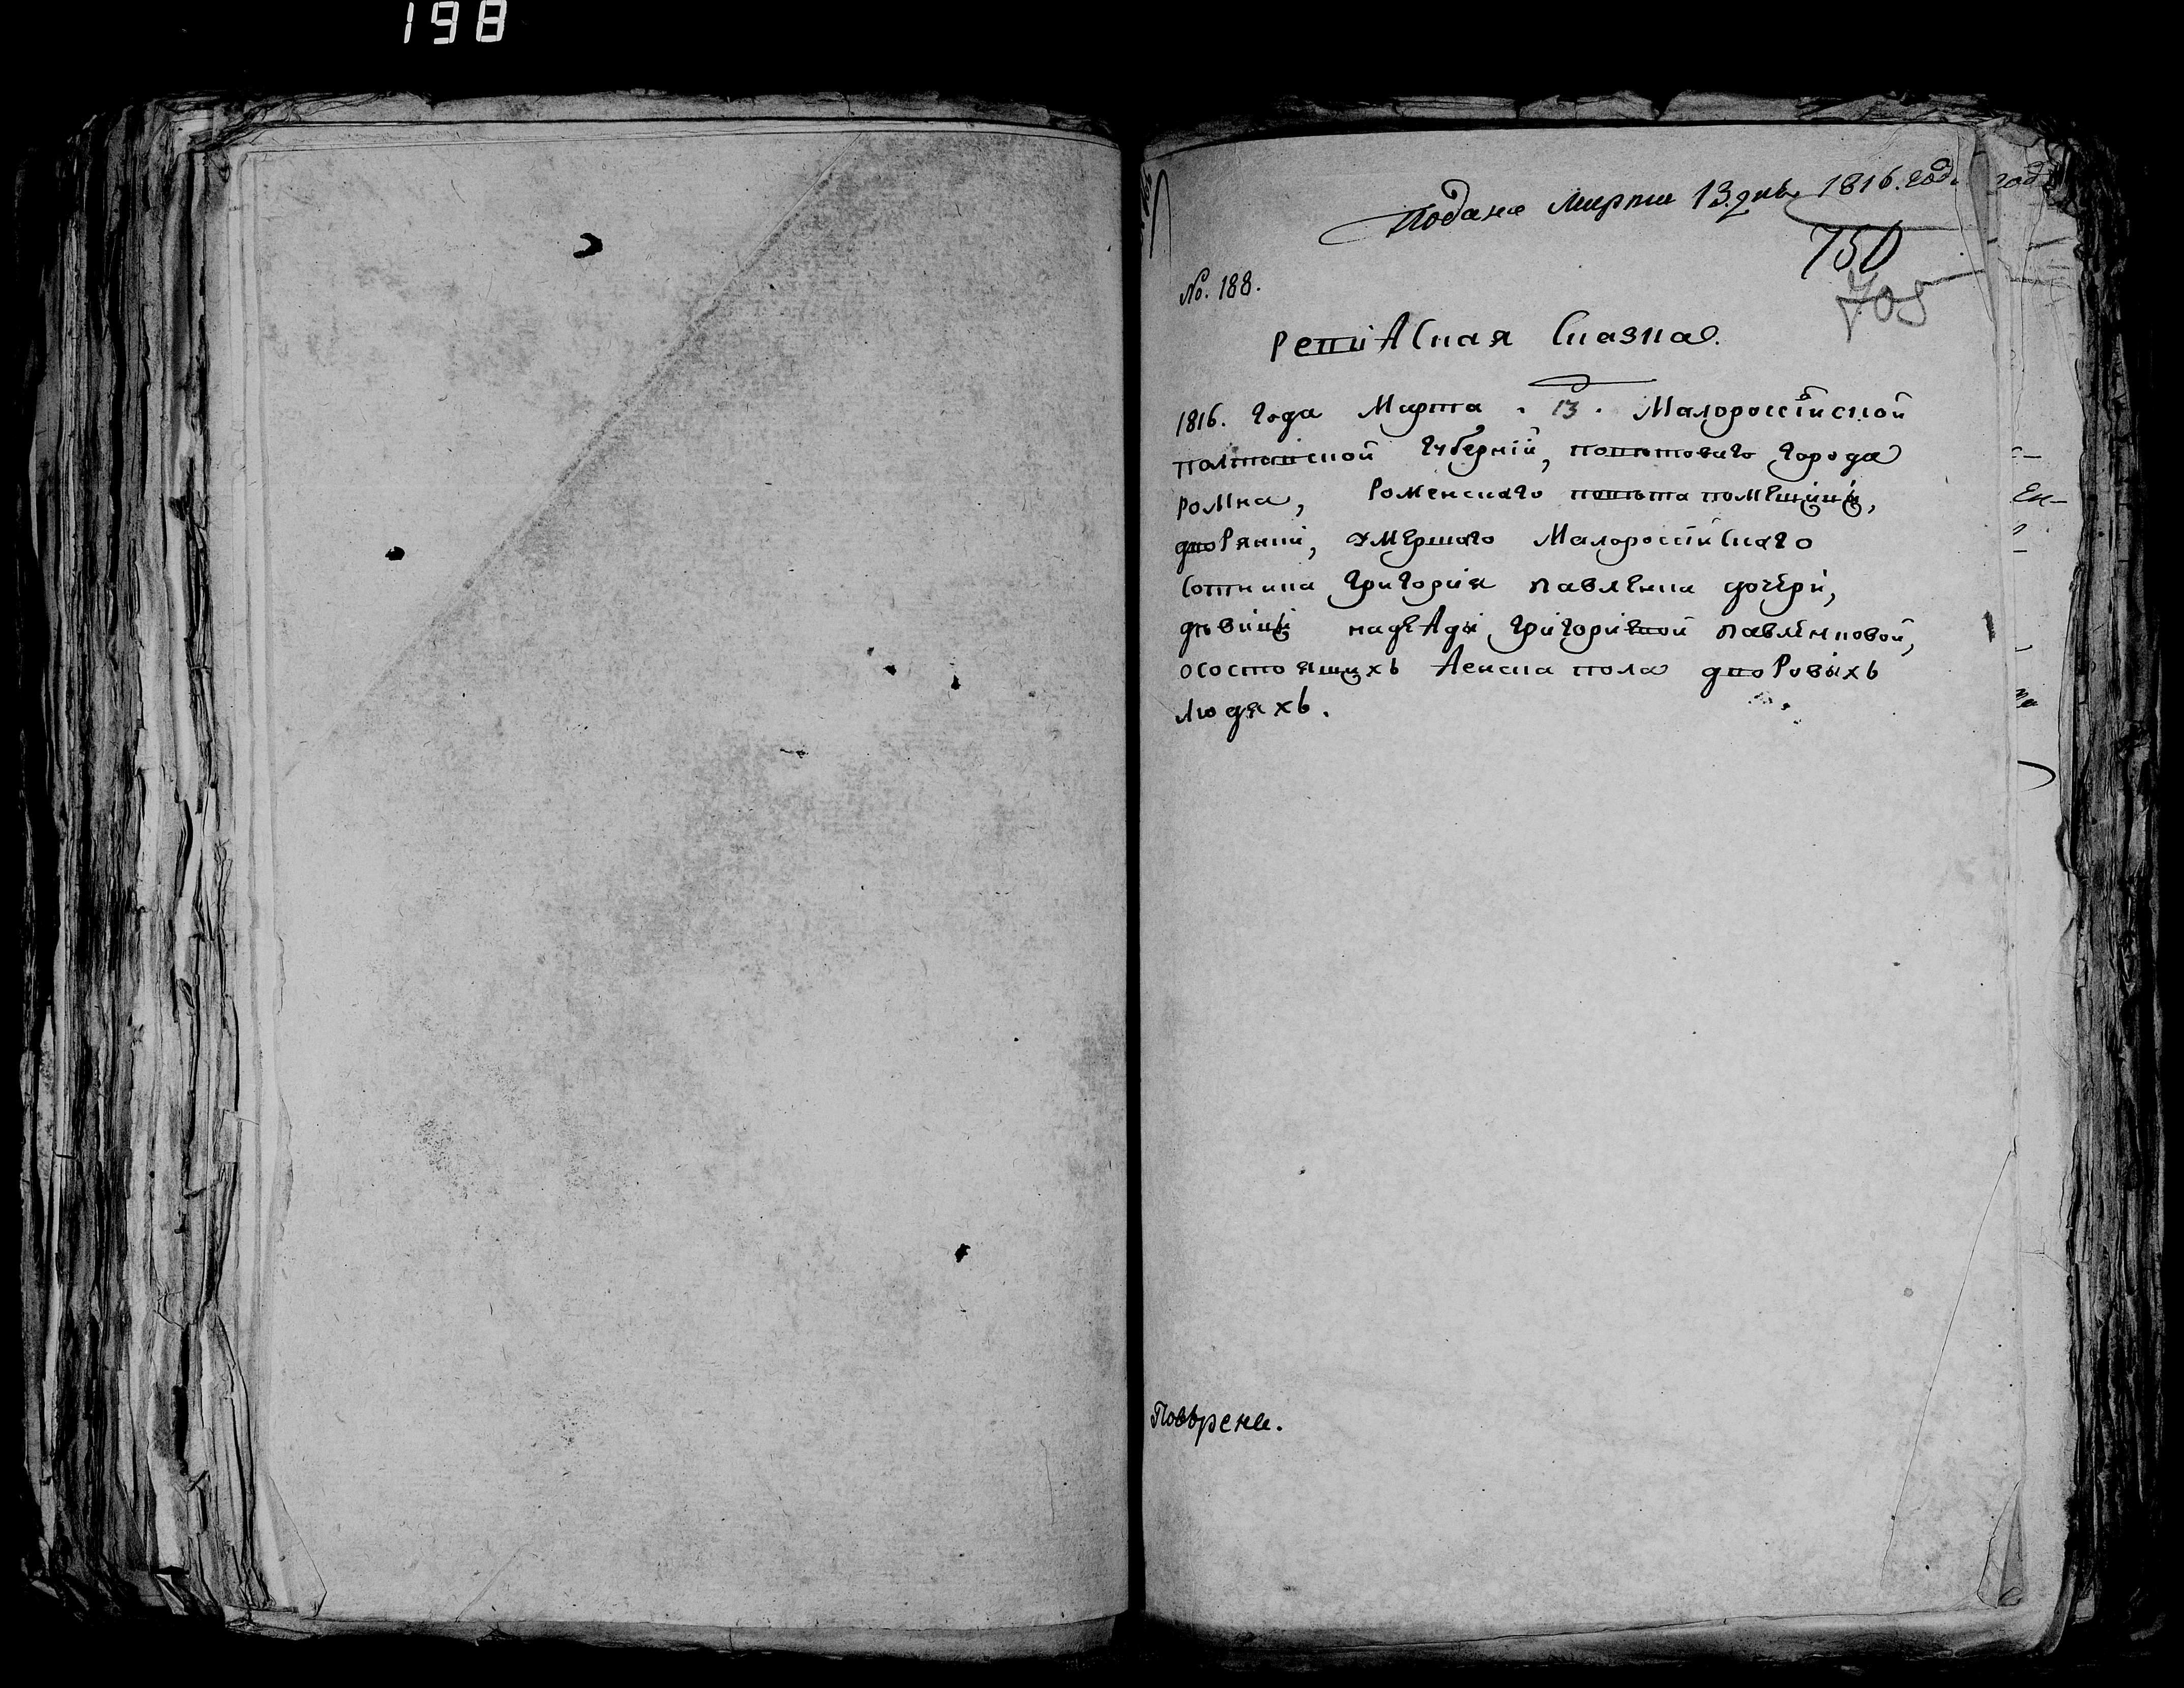 198
Подана Марта 13. днѧ 1816. год.
750
705
No. 188.
Ревижская Сказка.
1816. Года Марта . 13 . Малороссійской
полтавской Губерніи, повѣтоваго города
ромна, Роменскаго повѣта помѣщицы,
дворянки, умершаго Малороссійскаго
Сотника Григорія павленка дочери,
дѣвицы надежды Григориевой павленковой,
осостоящихъ женска пола дворовыхъ
людяхъ.
Повѣрена.